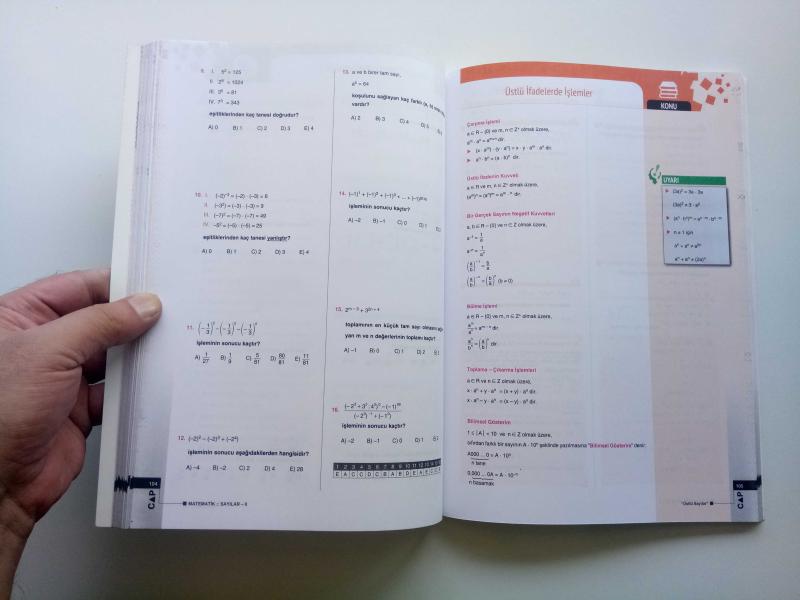 9. I. 5³ = 125
II. 2¹⁰ = 1024
III. 3⁴ = 81
IV. 7³ = 343
eşitliklerinden kaç tanesi doğrudur?
A) 0 B) 1 C) 2 D) 3 E) 4
10. I.
II.
III. (–7)² = (–7) · (–7) = 49
IV. –5² = (–5) · (–5) = 25
eşitliklerinden kaç tanesi yanlıştır?
A) 0 B) 1 C) 2 D) 3 E) 4
11.
işleminin sonucu kaçtır?
A) 1/27 B) 1/9 C) 5/81 D) 80/81 E) 11/81
12.
işleminin sonucu aşağıdakilerden hangisidir?
A) –4 B) –2 C) 2 D) 4 E) 28
104
CAP
MATEMATİK :: SAYILAR – II
13. a ve b birer tam sayı,
aᵇ = 64
koşulunu sağlayan kaç farklı (a, b)
vardır?
A) 2 B) 3 C) 4 D) 5
14.
işleminin sonucu kaçtır?
A) –2 B) –1 C) 0 D) 1
15.
toplamının en küçük tam sayı olması
yan m ve n değerlerinin toplamı kaçtır?
A) –1 B) 0 C) 1 D) 2
16.
işleminin sonucu kaçtır?
A) –2 B) –1 C) 0 D) 1
1 2 3 4 5 6 7 8 9 10 11 12 13
Üstlü İfadelerde İşlemler
KONU
Çarpma İşlemi
a ∈ R – {0} ve m, n ∈ Z⁺ olmak üzere,
aᵐ · aⁿ = aᵐ⁺ⁿ dir.
(x · aᵐ) · (y · aⁿ) = x · y · aᵐ⁺ⁿ dir.
aⁿ · bⁿ = (a · b)ⁿ dir.
Üstlü İfadenin Kuvveti
a ∈ R ve m, n ∈ Z⁺ olmak üzere,
(aᵐ)ⁿ = (aⁿ)ᵐ = aᵐ · ⁿ dir.
Bir Gerçek Sayının Negatif Kuvvetleri
a, b ∈ R – {0} ve n ∈ Z olmak üzere,
a⁻¹ = 1/a
a⁻ⁿ = 1/aⁿ
(a/b)⁻¹ = b/a
(a/b)⁻ⁿ = (b/a)ⁿ (b ≠ 0)
Bölme İşlemi
a ∈ R – {0} ve m, n ∈ Z⁺ olmak üzere,
aᵐ/aⁿ = aᵐ⁻ⁿ dir.
aⁿ/bⁿ = (a/b)ⁿ dir.
Toplama – Çıkarma İşlemleri
a ∈ R ve n ∈ Z olmak üzere,
x · aⁿ + y · aⁿ = (x + y) · aⁿ dir.
x · aⁿ – y · aⁿ = (x – y) · aⁿ dir.
Bilimsel Gösterim
1 ≤ |A| < 10 ve n ∈ Z olmak üzere,
sıfırdan farklı bir sayının A · 10ⁿ şeklinde yazılmasına "Bilimsel Gösterim" denir.
A000 ... 0 = A · 10ⁿ
n tane
0,000 ... 0A = A · 10⁻ⁿ
n basamak
UYARI
(3a)² = 3a · 3a
(3a)² ≠ 3 · a²
n ≠ 1 için
105
CAP
"Üslü Sayılar"